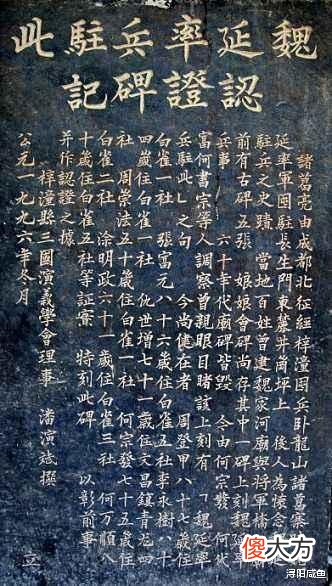 魏延率兵駐此
認證碑記
諸葛亮由成都北征經梓潼囤兵卧龍山諸葛寨魏
延率軍囤駐長生門東麓牛角坪上 後人為懷念魏延
駐兵之史蹟 當地百姓曾建魏家河廟與將軍橋廟
前有古碑五張 娘娘會碑尚存其中一碑上刻魏延率
兵事 六十年代廟碑皆毀 今由何宗發何代
富何書宗等人調察曾親眼目睹該上刻有「魏延率
兵駐此」之句 今尚健在者 周登甲八十七歲住
白雀一社 張富元八十六歲住白雀五社李永樹八十
四歲住白雀一社 仇世增七十一歲住文昌鎮青龙四
社 周崇法五十歲住白雀一社 何宗發七十五歲住
白雀二社 涂明政六十一歲住白雀三社 何万順八
十歲住白雀五社等証 特刻此碑 以彰前事
并作認證之據
梓潼縣三國演義學會理事 潘演撰
公元一九九六年冬月 立
傻大方
浔阳咸鱼